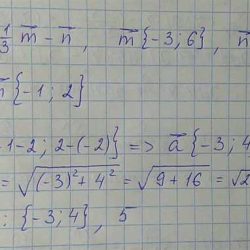 1/3 m̅ - n̅, m̅ {-3; 6}, n̅
{-1; 2}
-1-2; 2-(-2)} => a̅ {-3; 4
= √((-3)² + 4²) = √(9 + 16) = √2
: {-3; 4}, 5